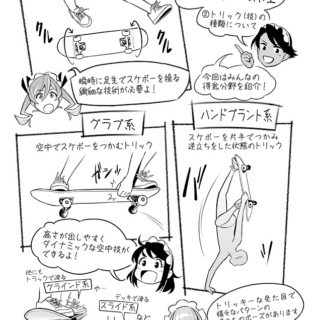 ②トリック(技)の
種類について
今回はみんなの
得意分野を紹介!
瞬時に足先でスケボーを操る
繊細な技術が必要よ!
グラブ系
空中でスケボーをつかむトリック
ガシッ
高さが出しやすく
ダイナミックな空中技が
できるよ!
ハンドプラント系
スケボーを片手でつかみ
逆立ちをした状態のトリック
他にも
トラックで滑る
グラインド系
デッキで滑る
スライド系
など
トリッキーな見た目で
様々なパターンの
ポーズがあります